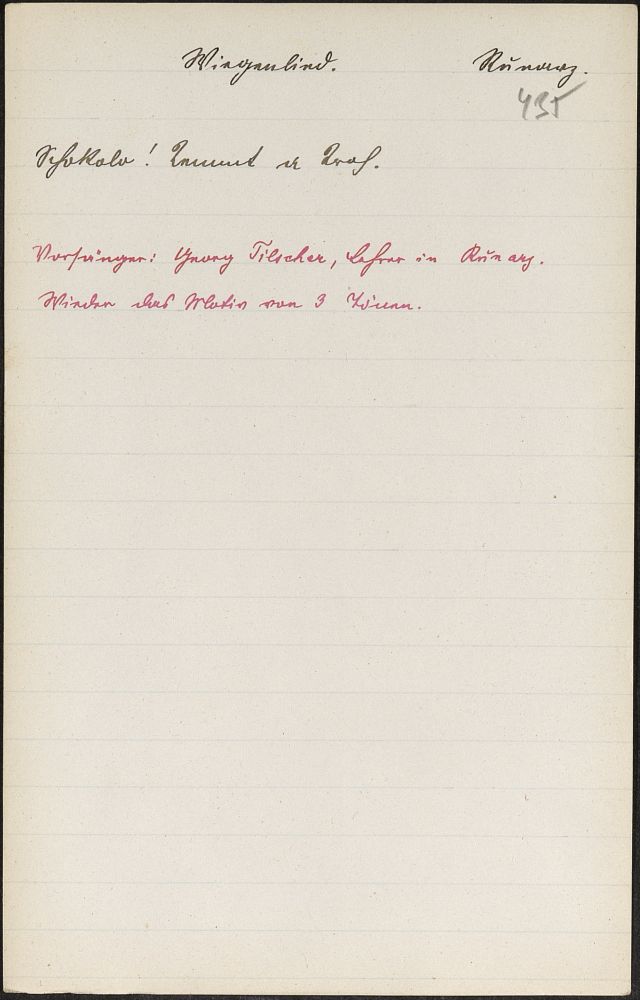 Wiegenlied. Runarz.
435
Schokolo! Kemmt a Krah.
Vorsänger: Georg Tilscher, Lehrer in Runarz.
Wieder das Motiv von 3 Tönen.